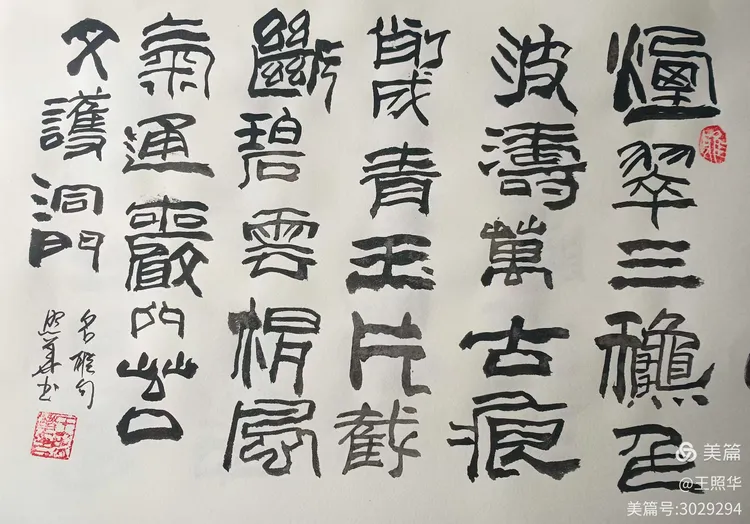 煙翠三龝色
波濤萬古痕
削成青玉片截
斷碧雲根風
氣通巖穴苔
文護洞門
名聯句
照華书
美篇
@王照华
美篇号:3029294